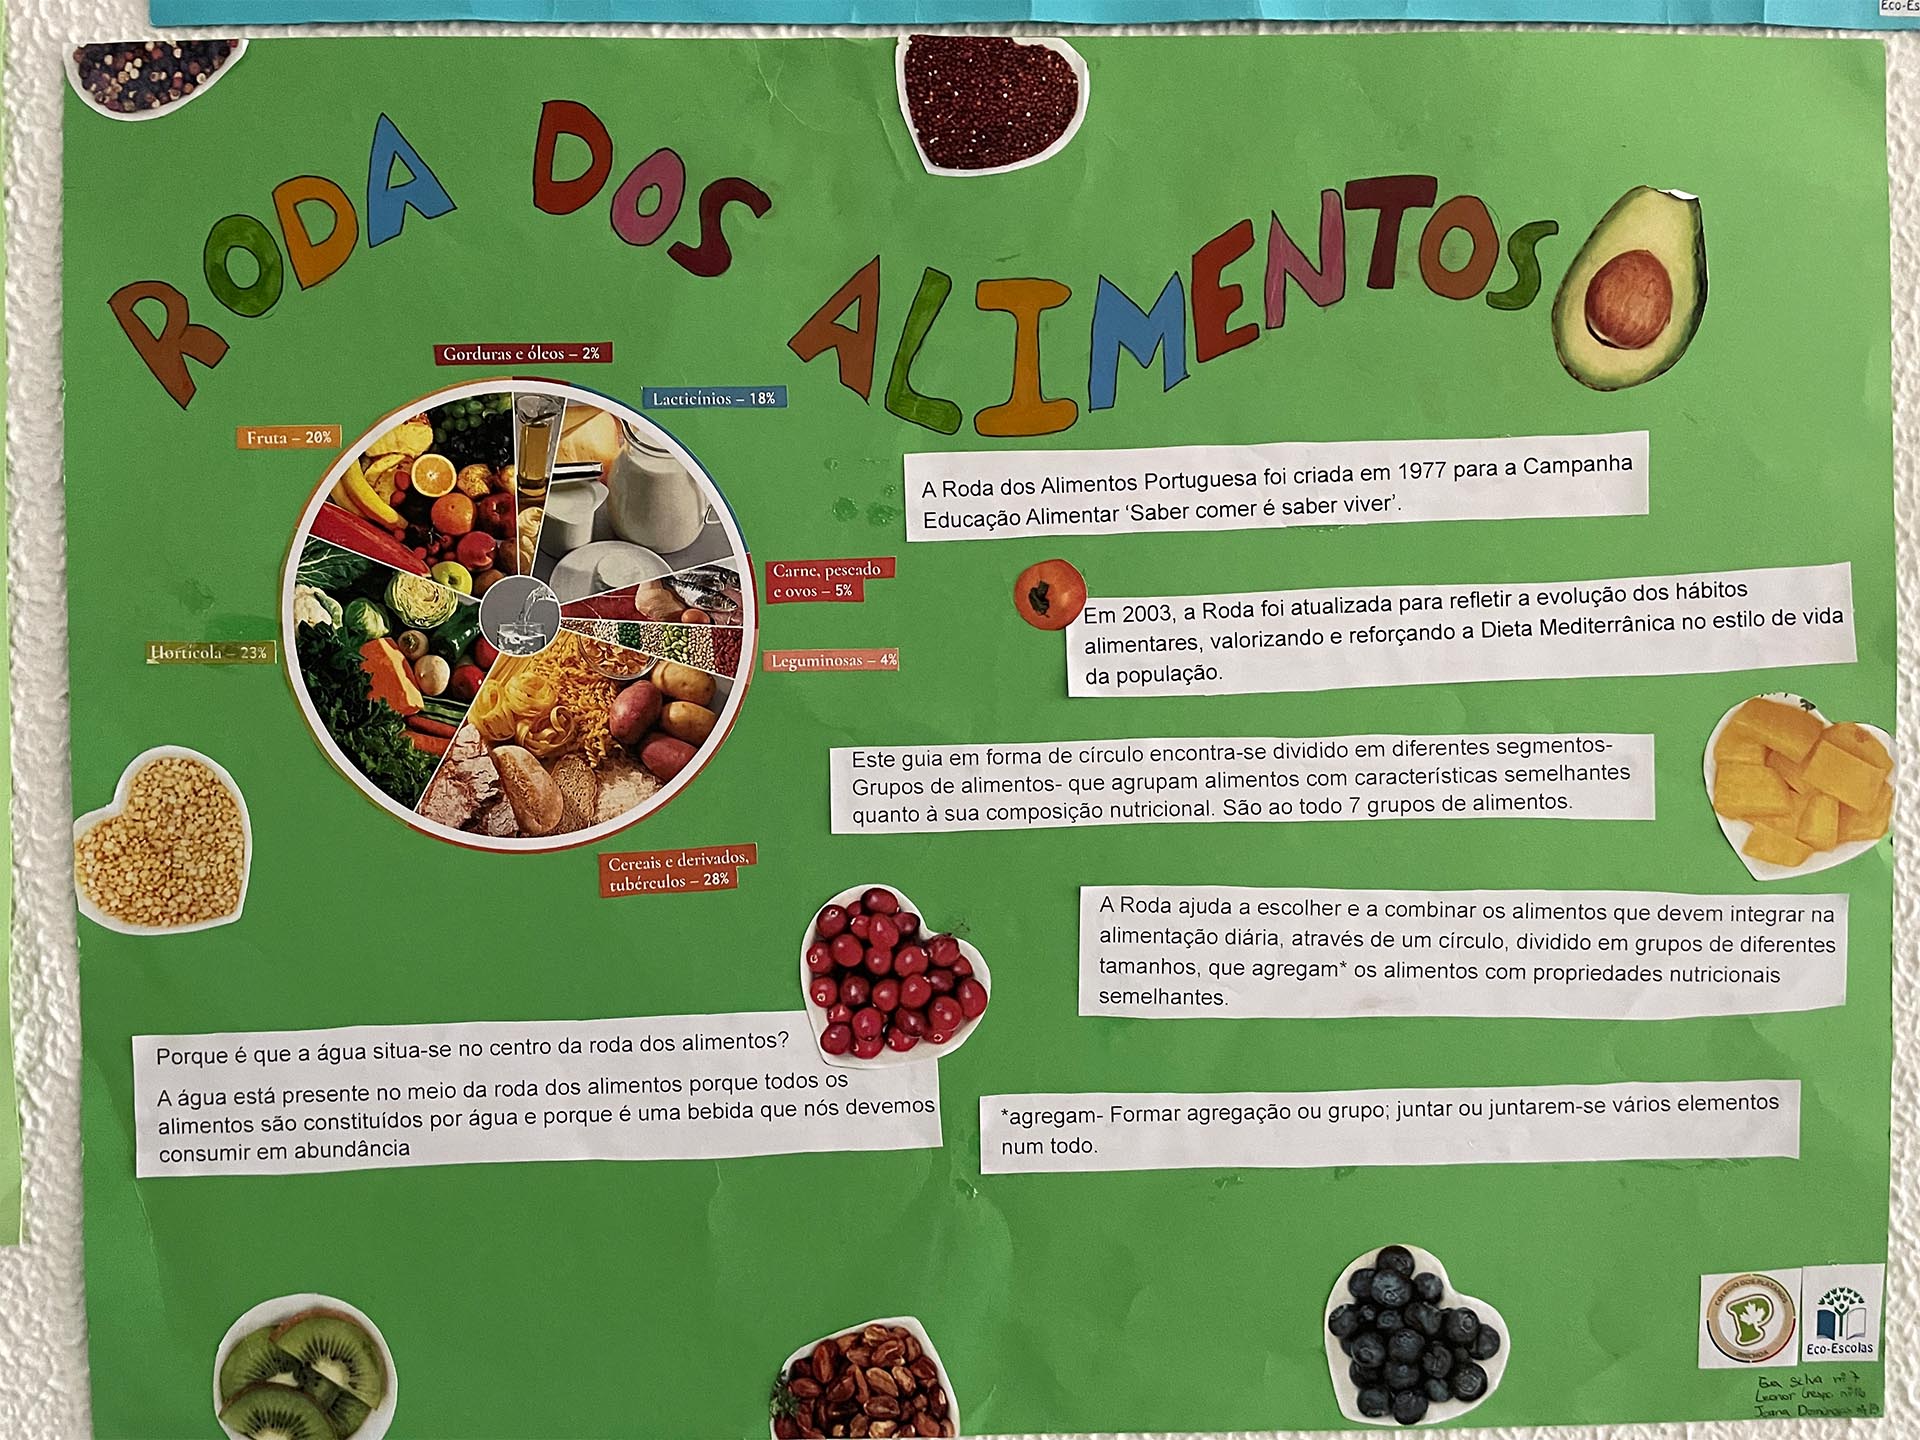 Eco-Es
RODA DOS ALIMENTOS
Gorduras e óleos – 2%
Lacticínios – 18%
Fruta – 20%
Carne, pescado
e ovos – 5%
Hortícola – 23%
Leguminosas – 4%
Cereais e derivados,
tubérculos – 28%
A Roda dos Alimentos Portuguesa foi criada em 1977 para a Campanha
Educação Alimentar ‘Saber comer é saber viver’.
Em 2003, a Roda foi atualizada para refletir a evolução dos hábitos
alimentares, valorizando e reforçando a Dieta Mediterrânica no estilo de vida
da população.
Este guia em forma de círculo encontra-se dividido em diferentes segmentos-
Grupos de alimentos- que agrupam alimentos com características semelhantes
quanto à sua composição nutricional. São ao todo 7 grupos de alimentos.
A Roda ajuda a escolher e a combinar os alimentos que devem integrar na
alimentação diária, através de um círculo, dividido em grupos de diferentes
tamanhos, que agregam* os alimentos com propriedades nutricionais
semelhantes.
Porque é que a água situa-se no centro da roda dos alimentos?
A água está presente no meio da roda dos alimentos porque todos os
alimentos são constituídos por água e porque é uma bebida que nós devemos
consumir em abundância
*agregam- Formar agregação ou grupo; juntar ou juntarem-se vários elementos
num todo.
COLÉGIO DOS PLÁTANOS
P
RINCHOA
Eco-Escolas
Eva Silva nº 7
Leonor Crespo nº 16
Joana Domingos nº